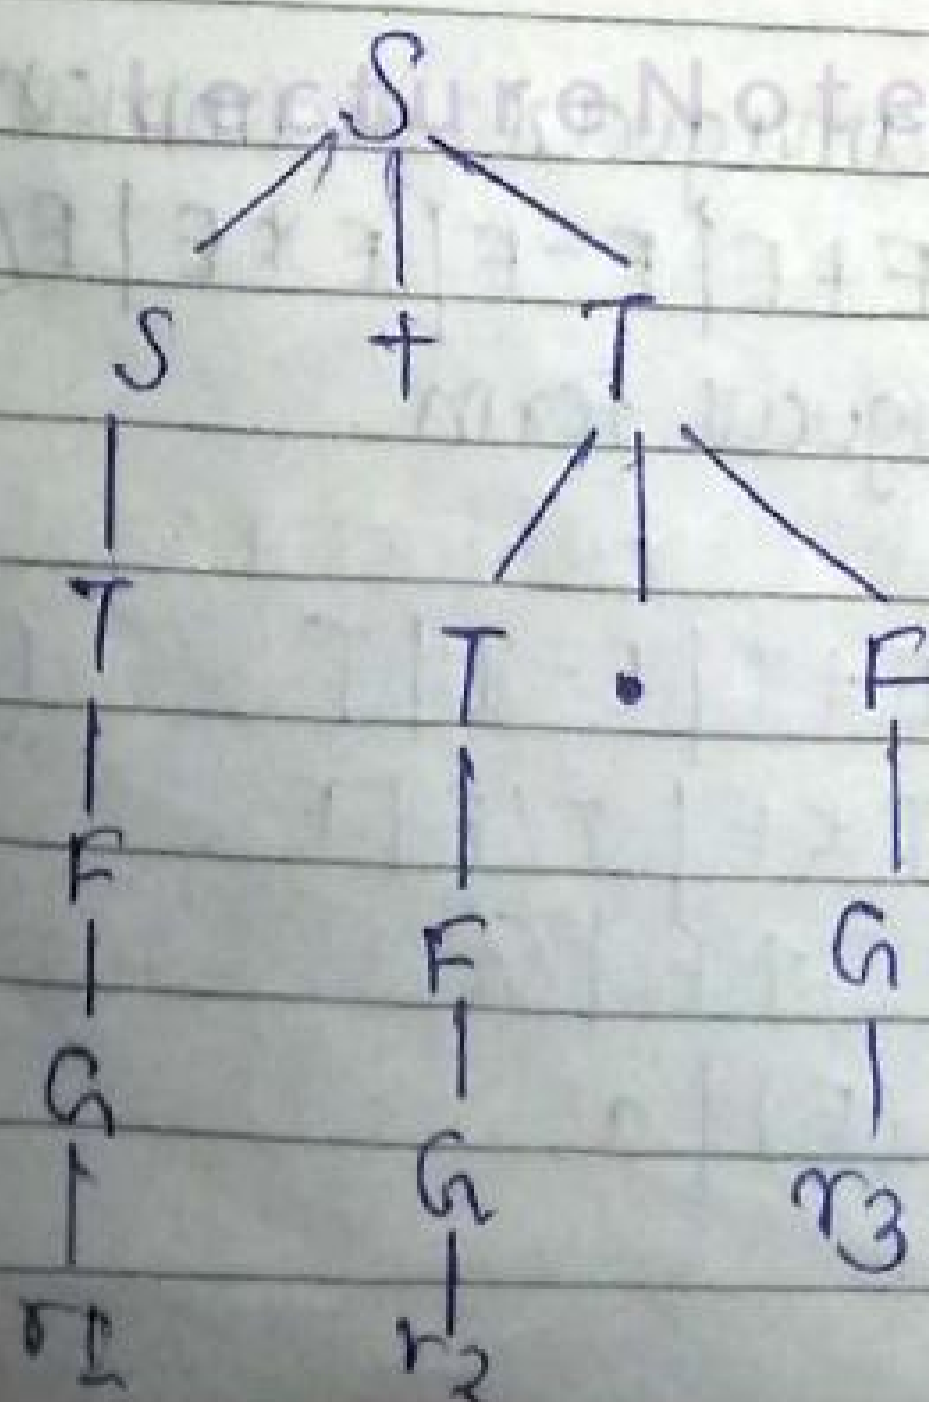 LectureNote
S
S + T
T T . F
F F G
G G r3
r1 r2